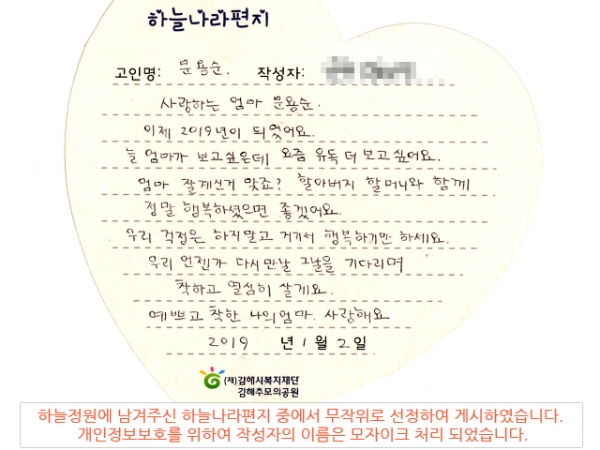 하늘나라편지
고인명: 문용순. 작성자:
사랑하는 엄마 문용순.
이제 2019년이 되었어요.
늘 엄마가 보고싶은데 요즘 유독 더 보고싶어요.
엄마 잘계신거 맞죠? 할아버지 할머니와 함께
정말 행복하셨으면 좋겠어요.
우리 걱정은 하지말고 거기서 행복하기만 하세요.
우리 언젠가 다시만날 그날을 기다리며
착하고 열심히 살게요.
예쁘고 착한 나의엄마. 사랑해요
2019 년 1 월 2 일
(재)김해시복지재단
김해추모의공원
하늘정원에 남겨주신 하늘나라편지 중에서 무작위로 선정하여 게시하였습니다.
개인정보보호를 위하여 작성자의 이름은 모자이크 처리 되었습니다.